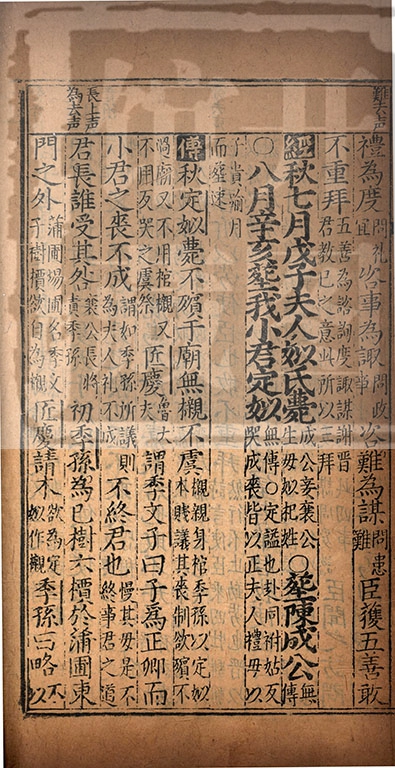 難去声
禮為度問礼宜咨事為諏問政事咨難為謀問患難臣獲五善敢
不重拜五善為諮詢度諏謀謝晉君教已之意此所以三拜
經秋七月戊子夫人姒氏薨成公妾襄公生母姒杞姓○塟陳成公無傳
○八月辛亥塟我小君定姒無傳○定謚也赴同祔姑反哭成喪皆以正夫人禮母以
子貴踰月而葬速
傳秋定姒薨不殯于廟無櫬不虞櫬親身棺季孫以定姒本賤議其喪制欲殯不
過廟又不用棺櫬又不用反哭之虞祭匠慶魯大夫謂季文子曰子為正卿而
小君之喪不成謂如季孫所議為夫人礼不成則不終君也慢其母是不終事君之道
長上声
為去声
君長誰受其咎襄公長將責季孫初季孫為己樹六檟於蒲圃東
門之外蒲圃場圃名季文子樹檟欲自為櫬匠慶請木欲為定姒作櫬季孫曰略不以